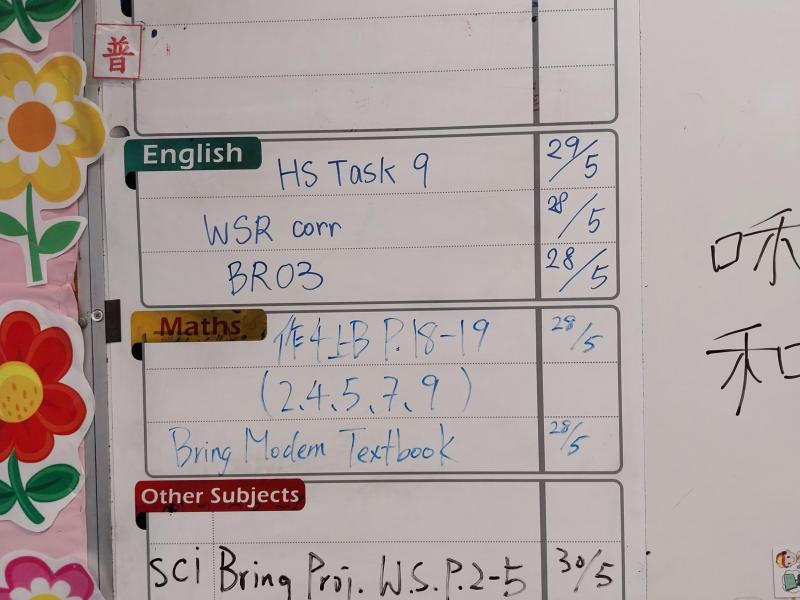 普
English
HS Task 9 29/5
WSR corr 28/5
BR03 28/5
Maths
作4上B P.18-19 28/5
(2、4、5、7、9)
Bring Modern Textbook 28/5
Other Subjects
SCI Bring Proj. W.S. P.2-5 30/5
咊
和